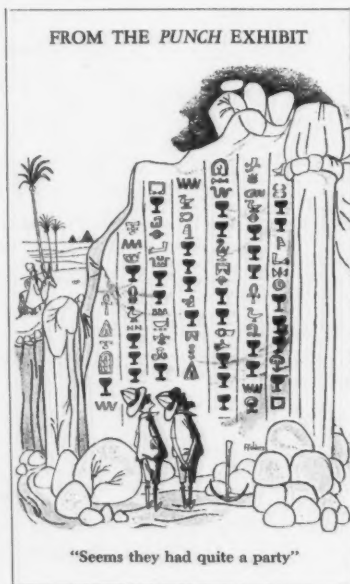 FROM THE PUNCH EXHIBIT
"Seems they had quite a party"